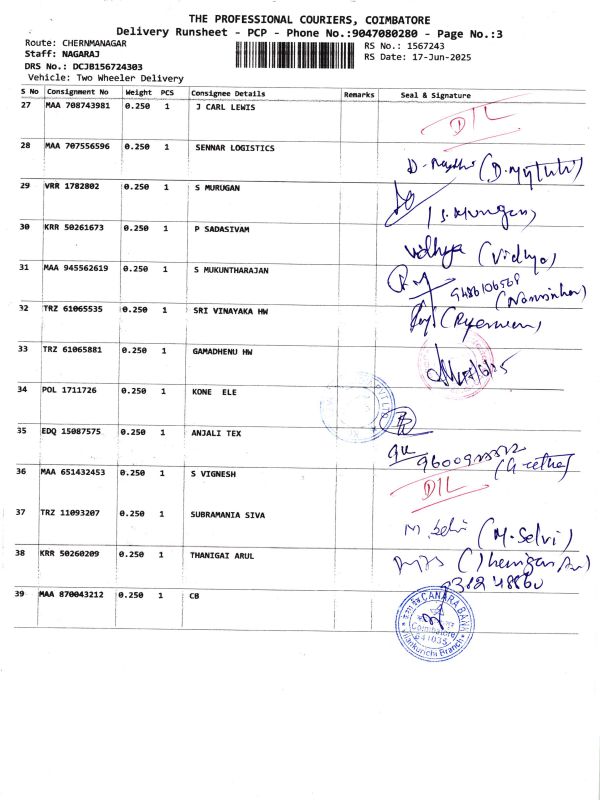 THE PROFESSIONAL COURIERS, COIMBATORE
Delivery Runsheet - PCP - Phone No.:9047080280 - Page No.:3
Route: CHERNMANAGAR
RS No.: 1567243
Staff: NAGARAJ
RS Date: 17-Jun-2025
DRS No.: DCJB156724303
Vehicle: Two Wheeler Delivery
S No Consignment No Weight PCS Consignee Details Remarks Seal & Signature
27 MAA 708743981 0.250 1 J CARL LEWIS D/L
28 MAA 707556596 0.250 1 SENNAR LOGISTICS
29 VRR 1782802 0.250 1 S MURUGAN
30 KRR 50261673 0.250 1 P SADASIVAM Vidhya (Vidhya)
31 MAA 945562619 0.250 1 S MUKUNTHARAJAN
32 TRZ 61065535 0.250 1 SRI VINAYAKA HW
33 TRZ 61065881 0.250 1 GAMADHENU HW
34 POL 1711726 0.250 1 KONE ELE
35 EDQ 15087575 0.250 1 ANJALI TEX
36 MAA 651432453 0.250 1 S VIGNESH D/L
37 TRZ 11093207 0.250 1 SUBRAMANIA SIVA M. Selvi (M. Selvi)
38 KRR 50260209 0.250 1 THANIGAI ARUL
39 MAA 870043212 0.250 1 CB
CANARA BANK
Coimbatore
641035
Vilankurichi Branch